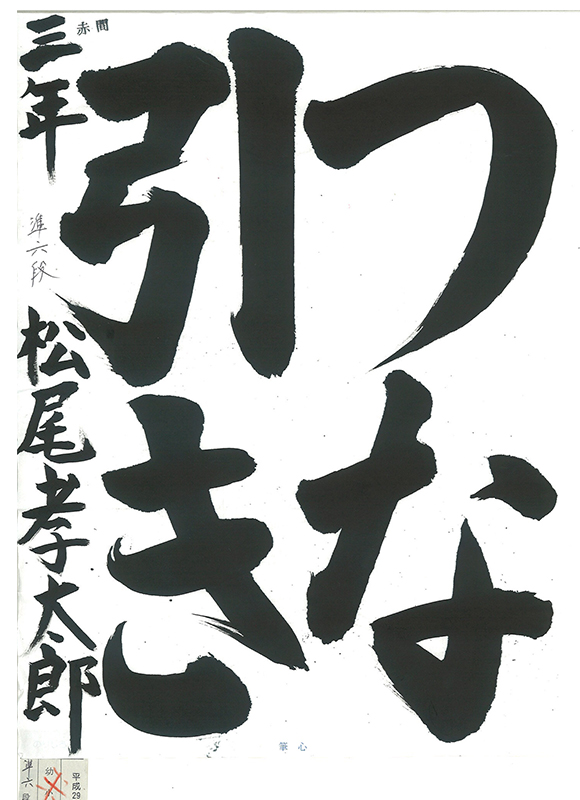 つな
引き
赤間
三年
準六段
松尾孝太郎
心筆
準六段
幼
平成29